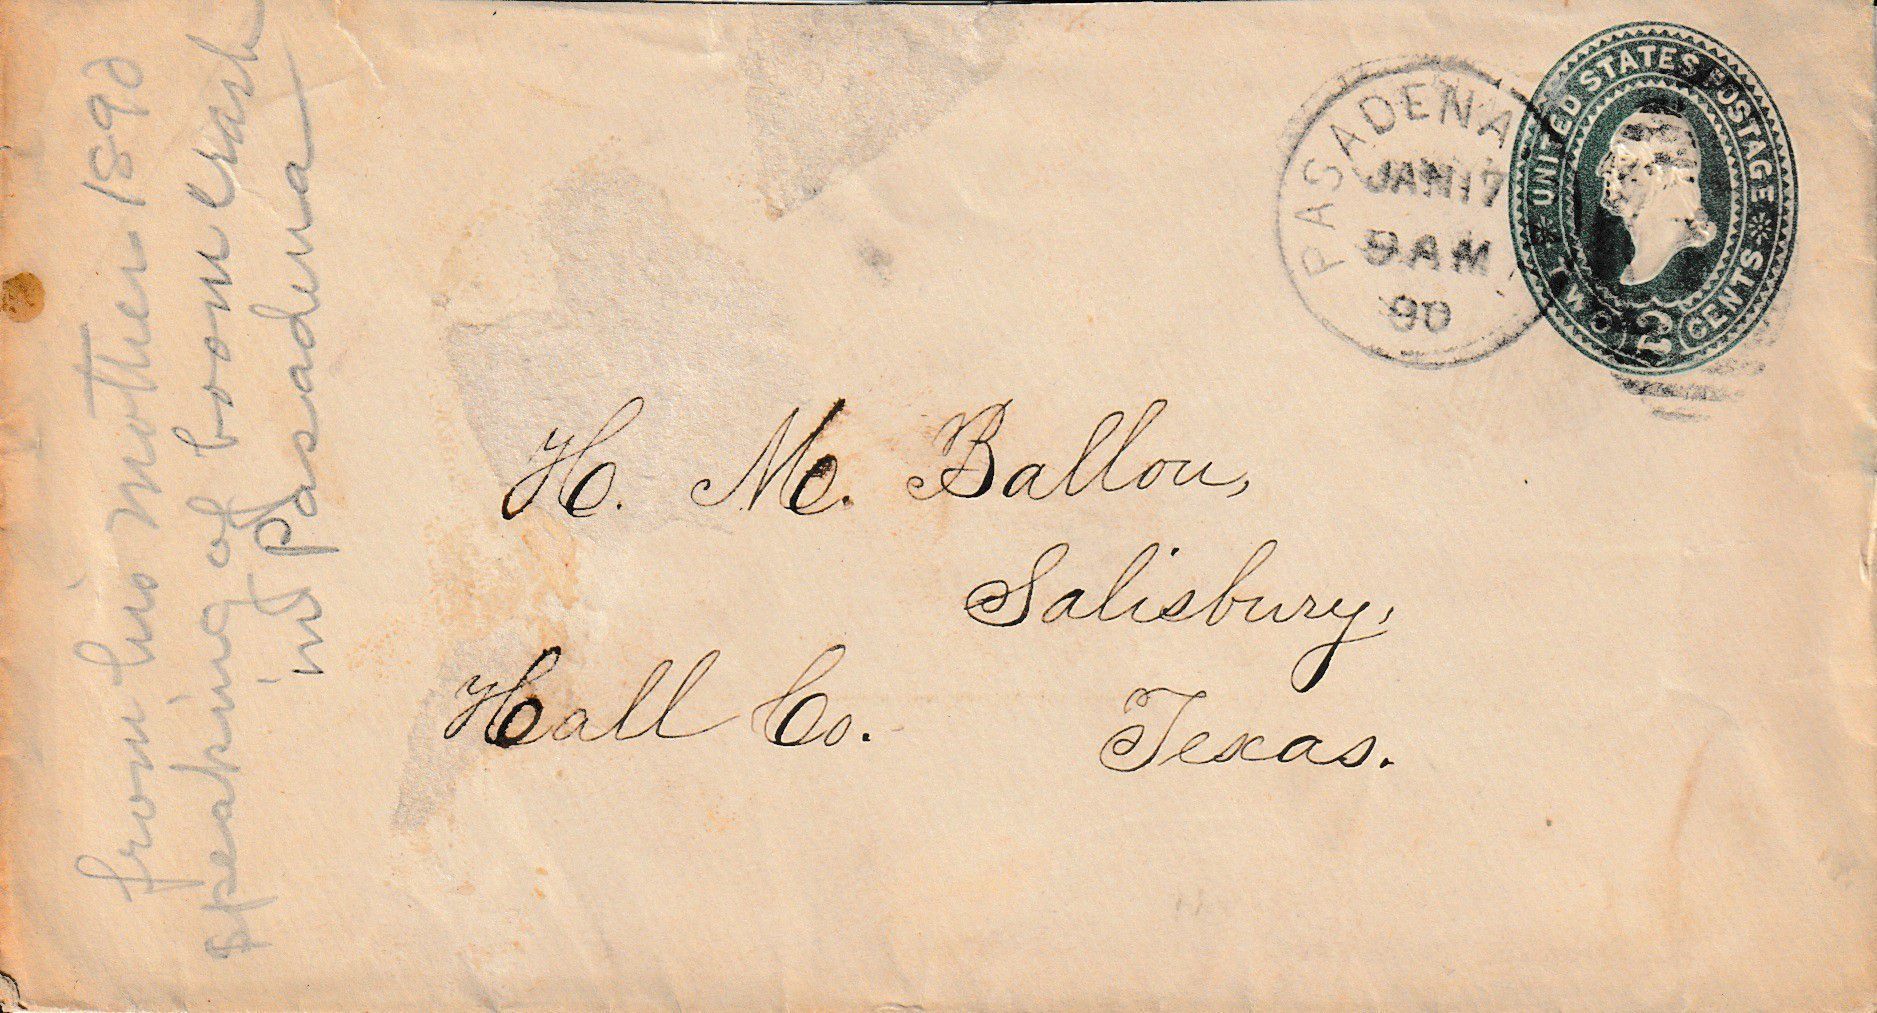 from his mother 1890
speaking of boom crash
in Pasadena
PASADENA
JAN 17
9 AM
90
UNITED STATES POSTAGE
TWO 2 CENTS
H. M. Ballou,
Salisbury,
Hall Co. Texas.